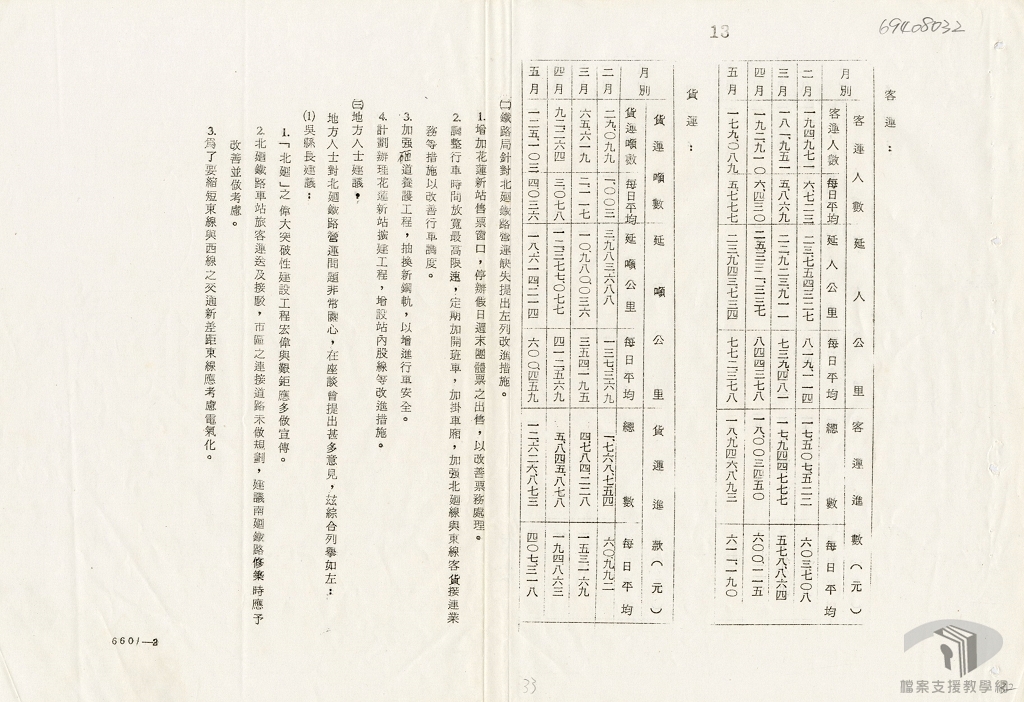 69408032
13
客運：
月別 客運人數 延人公里 客運進數（元）
客運人數 每日平均 延人公里 每日平均 總數 每日平均
二月 一九四、九七一 六、七二三 二三、七五四、三二七 八一九、一一四 一七、五〇七、五二二 六〇三、七〇八
三月 一八一、九五一 五、八六九 二二、九二三、九一一 七三九、四八一 一七、九四四、七七七 五七八、八六四
四月 一九二、九一〇 六、四三〇 二五、三三一、三三七 八四四、三七八 一八、〇〇三、四五〇 六〇〇、一一五
五月 一七九、〇八九 五、七七七 二三、九四三、七三四 七七二、三七八 一八、九四六、八九三 六一一、一九〇
貨運：
月別 貨運噸數 延噸公里 貨運進款（元）
貨運噸數 每日平均 延噸公里 每日平均 總數 每日平均
二月 二九、〇九九 一、〇〇三 三、九八三、六八八 一三七、三六九 一、七六八、七五四 六〇、九九二
三月 六五、六一九 二、一一七 一〇、九八〇、〇三六 三五四、一九五 四、七四八、二二八 一五三、一六九
四月 九二、二六四 三、〇七八 一二、三七七、〇七七 四一二、五六九 五、八四五、八七八 一九四、八六三
五月 一二五、一〇三 四、〇三六 一八、六一四、二一四 六〇〇、四五九 一二、六二六、八七三 四〇七、三一八
㈡鐵路局針對北廻鐵路營運缺失提出左列改進措施。
1.增加花蓮新站售票窗口，停辦假日週末團體票之出售，以改善票務處理。
2.調整行車時間放寬最高限速，定期加開班車，加掛車廂，加强北廻線與東線客貨接運業
務等措施以改善行車調度。
3.加强砸道養護工程，抽換新鋼軌，以增進行車安全。
4.計劃辦理花蓮新站擴建工程，增設站內股線等改進措施。
㈢地方人士建議，
地方人士對北廻鐵路營運問題非常關心，在座談曾提出甚多意見，玆綜合列擧如左：
⑴吳縣長建議：
1.「北廻」之偉大突破性建設工程宏偉與艱鉅應多做宣傳。
2.北廻鐵路車站旅客運送及接駁，市區之連接道路未做規劃，建議南廻鐵路修築時應予
改善並做考慮。
3.爲了要縮短東線與西線之交通新差距東線應考慮電氣化。
6601—2
33
檔案支援教學網